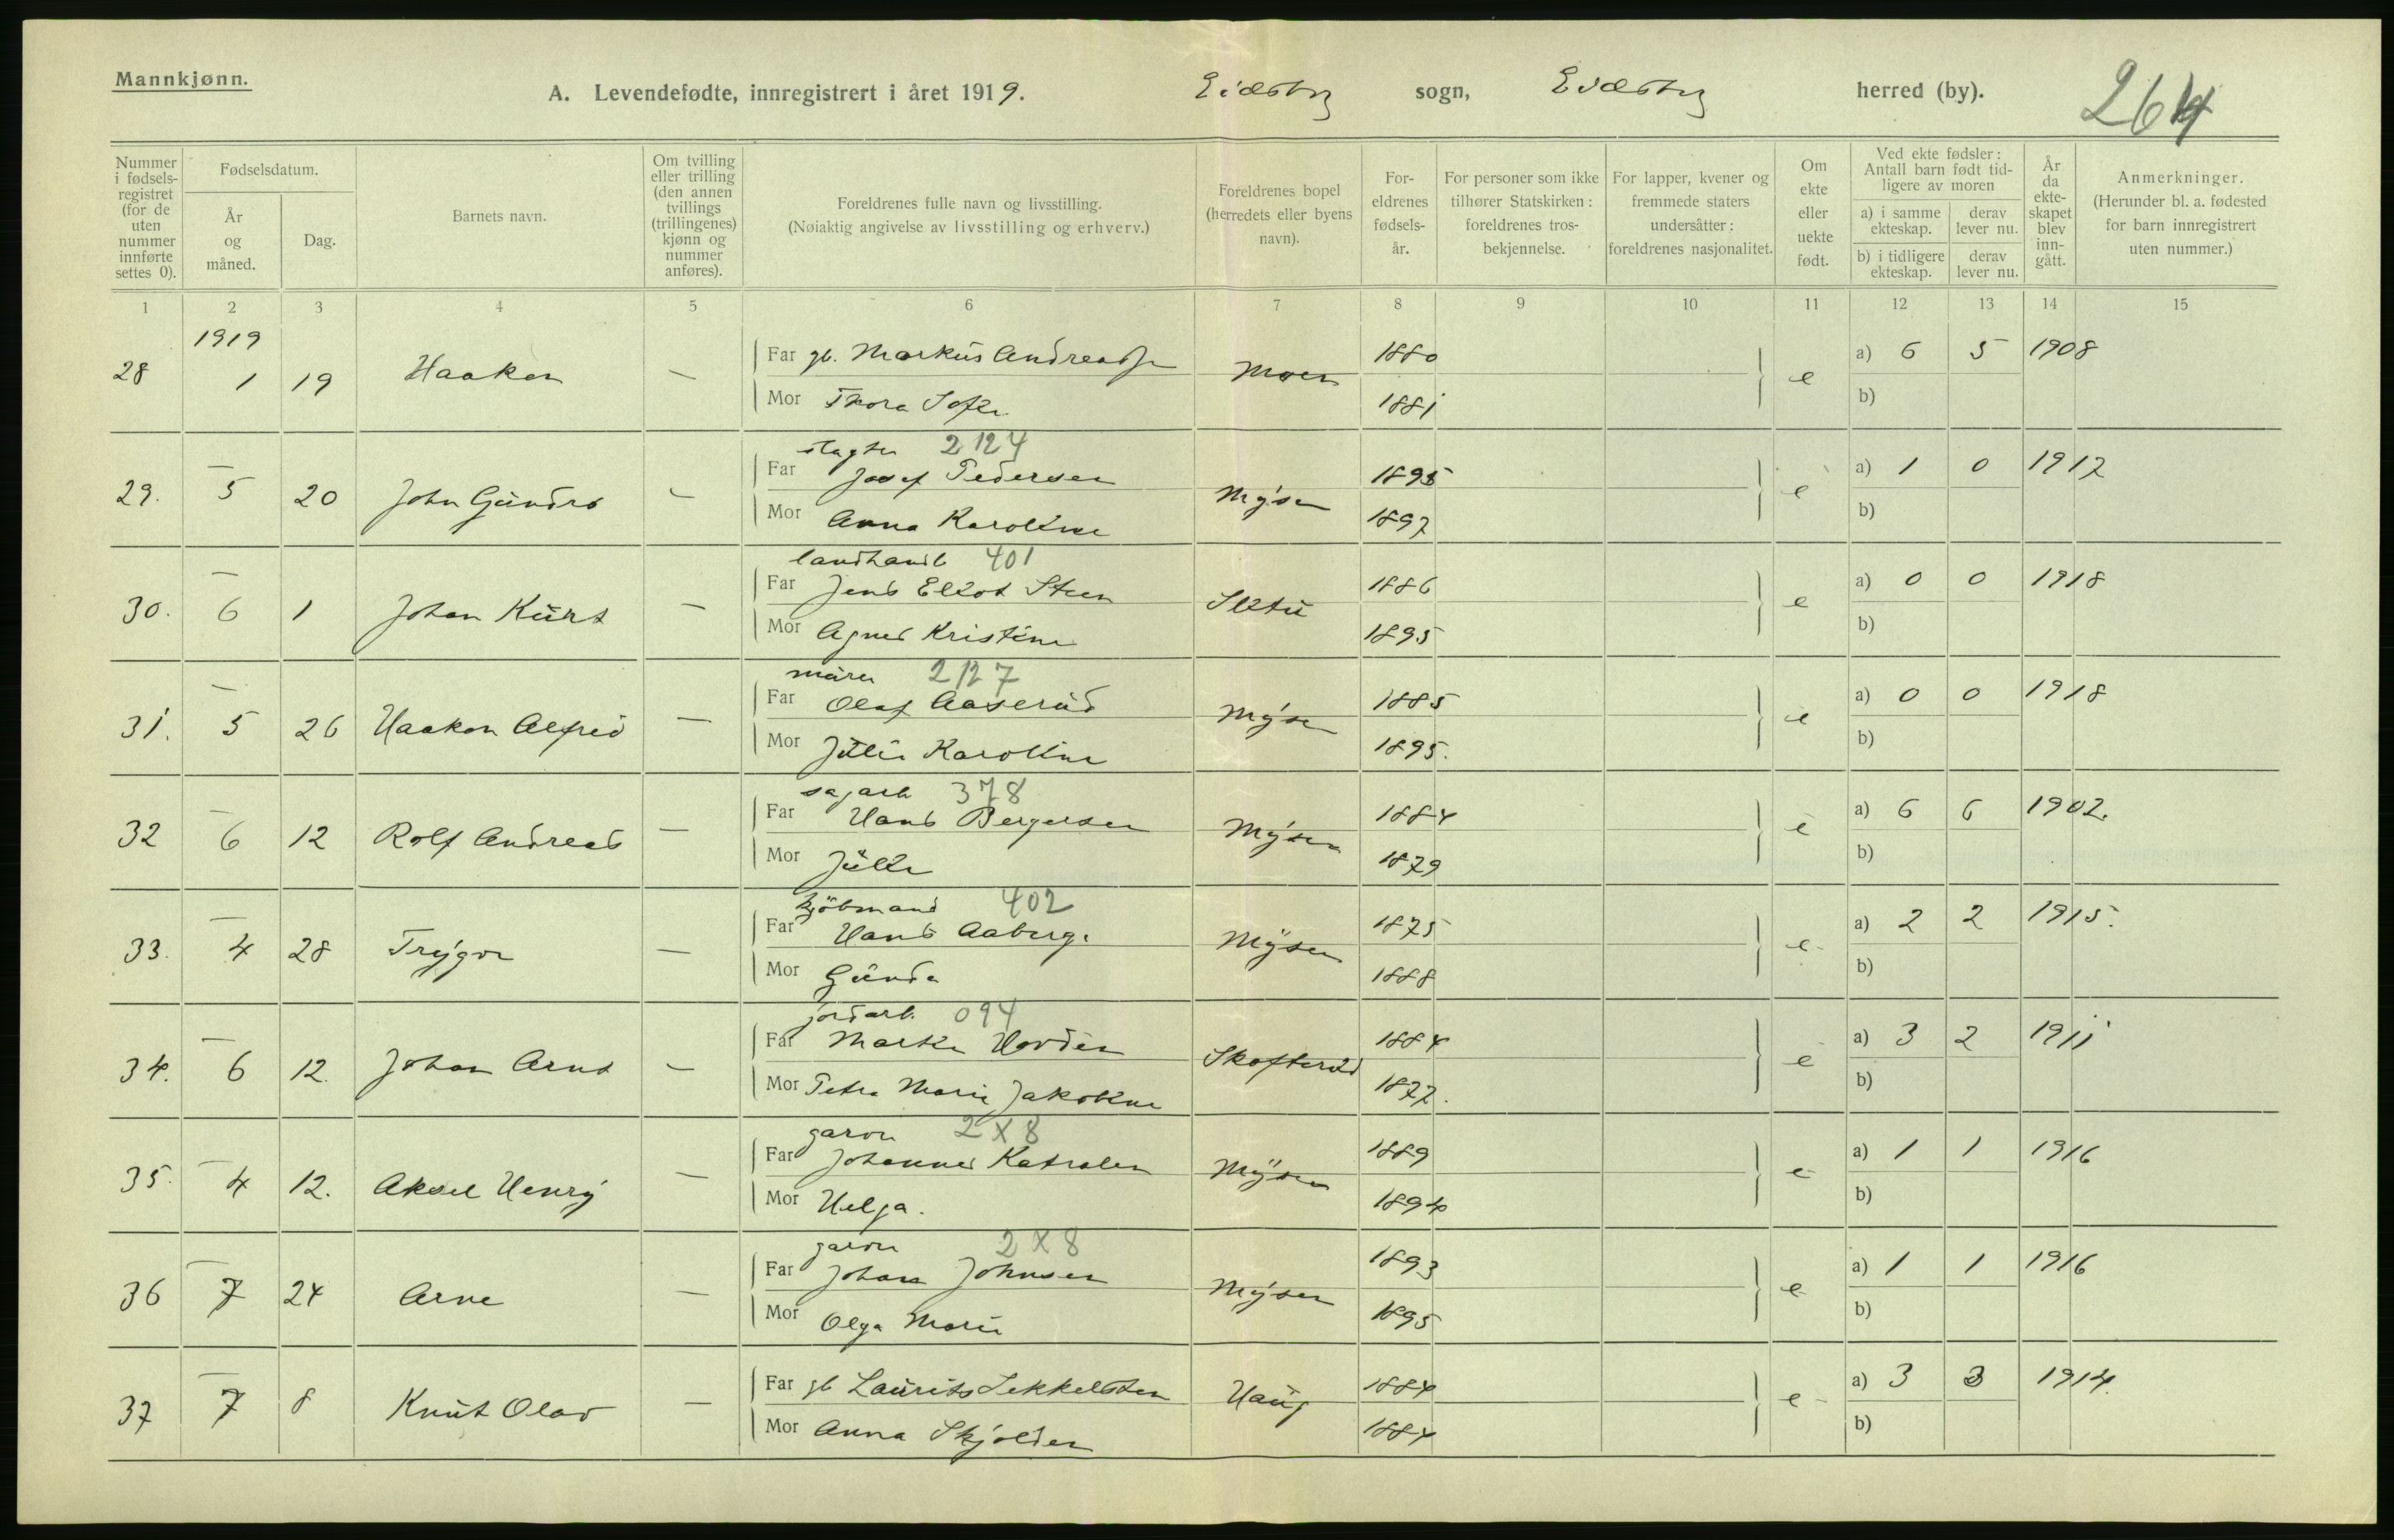 Mannkjønn.
A. Levendefødte, innregistrert i året 1919. Eidsberg sogn, Eidsberg herred (by). 264
Nummer i fødselsregistret (for de uten nummer innførte settes 0).
Fødselsdatum.
År og måned.
Dag.
Barnets navn.
Om tvilling eller trilling (den annen tvillings (trillingenes) kjønn og nummer anføres).
Foreldrenes fulle navn og livsstilling.
(Nøiaktig angivelse av livsstilling og erhverv.)
Foreldrenes bopel (herredets eller byens navn).
Foreldrenes fødselsår.
For personer som ikke tilhører Statskirken: foreldrenes trosbekjennelse.
For lapper, kvener og fremmede staters undersåtter: foreldrenes nasjonalitet.
Om ekte eller uekte født.
Ved ekte fødsler: Antall barn født tidligere av moren
a) i samme ekteskap. derav lever nu.
b) i tidligere ekteskap. derav lever nu.
År da ekteskapet blev inngått.
Anmerkninger.
(Herunder bl. a. fødested for barn innregistrert uten nummer.)
1 2 3 4 5 6 7 8 9 10 11 12 13 14 15
1919
28 1 19 Haakon — Far gb. Markus Andreas Moen 1880 e a) 6 5 1908
Mor Thora Sofie 1881 b)
slagter 2124
29. — 5 20 John Gundro — Far Josef Pedersen Mysen 1895 e a) 1 0 1917
Mor Anna Karoline 1897 b)
landhandl 401
30. — 6 1 Johan Kurt — Far Jens Eliot Steen Slitu 1886 e a) 0 0 1918
Mor Agnes Kristine 1895 b)
murer 2127
31. — 5 26 Haakon Alfred — Far Olaf Aaserud Mysen 1885 e a) 0 0 1918
Mor Julie Karoline 1895. b)
sagarb 378
32 — 6 12 Rolf Andreas — Far Hans Bergersen Mysen 1884 e a) 6 6 1902.
Mor Julie 1879 b)
kjøbmand 402
33. — 4 28 Trygve — Far Hans Aaberg. Mysen 1875 e a) 2 2 1915.
Mor Gunda 1888 b)
jordarb. 094
34. — 6 12. Johan Arnt — Far Martin Hovden Skofterud 1884 e a) 3 2 1911
Mor Petra Marie Jakobine 1877. b)
garver 2X8
35. — 4 12. Aksel Henry — Far Johannes Katralen Mysen 1889 e a) 1 1 1916
Mor Helga. 1894 b)
garver 2X8
36 — 7 24 Arne — Far Johan Johnsen Mysen 1893 e a) 1 1 1916
Mor Olga Marie 1895 b)
37 — 7 8 Knut Olav — Far gb Laurits Sekkelsten Haug 1884 e a) 3 3 1914.
Mor Anna Skjolden 1884 b)